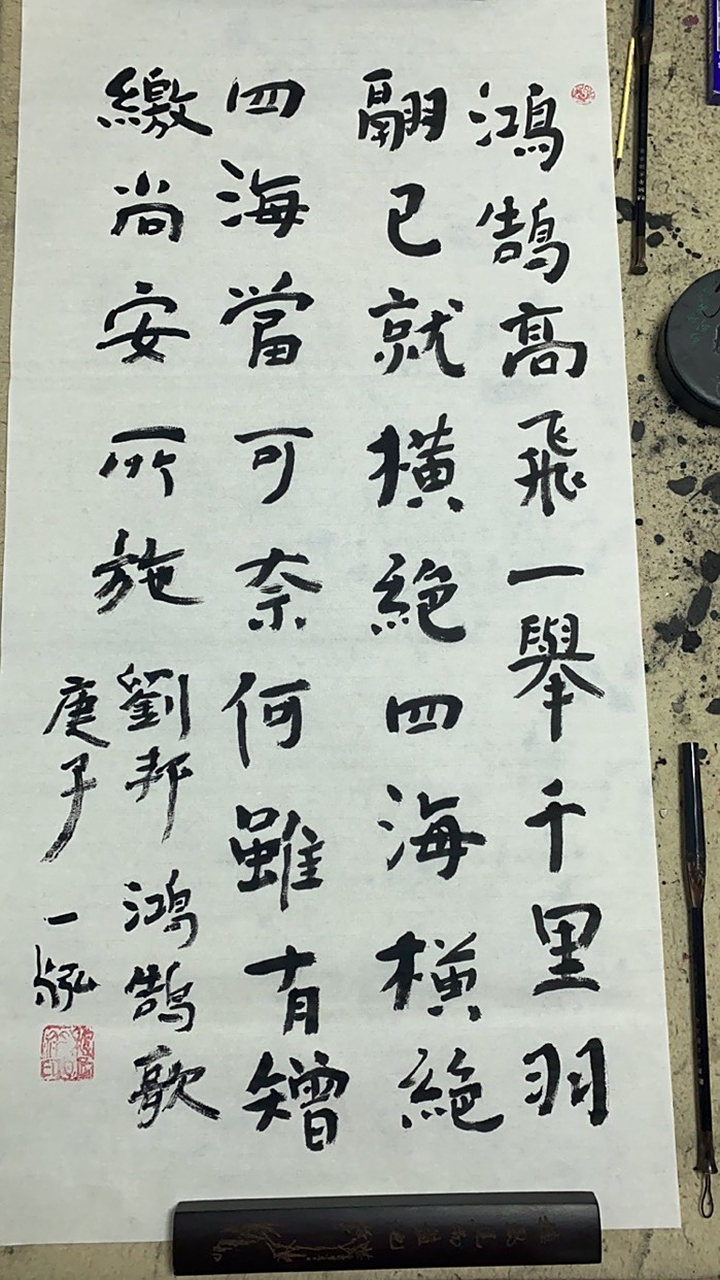 鴻鵠高飛一舉千里羽
翮已就橫絕四海橫絕
四海當可奈何雖有矰
繳尚安所施
劉邦鴻鵠歌
庚子
一